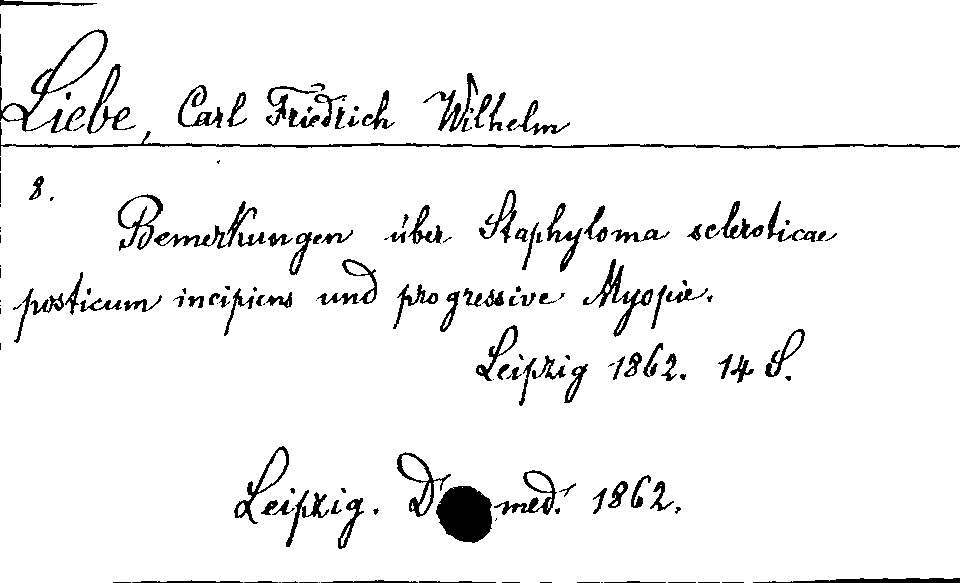 Liebe, Carl Friedrich Wilhelm
8.
Bemerkungen über Staphyloma scleroticae
posticum incipiens und progressive Myopie.
Leipzig 1862. 14 S.
Leipzig. med. 1862.